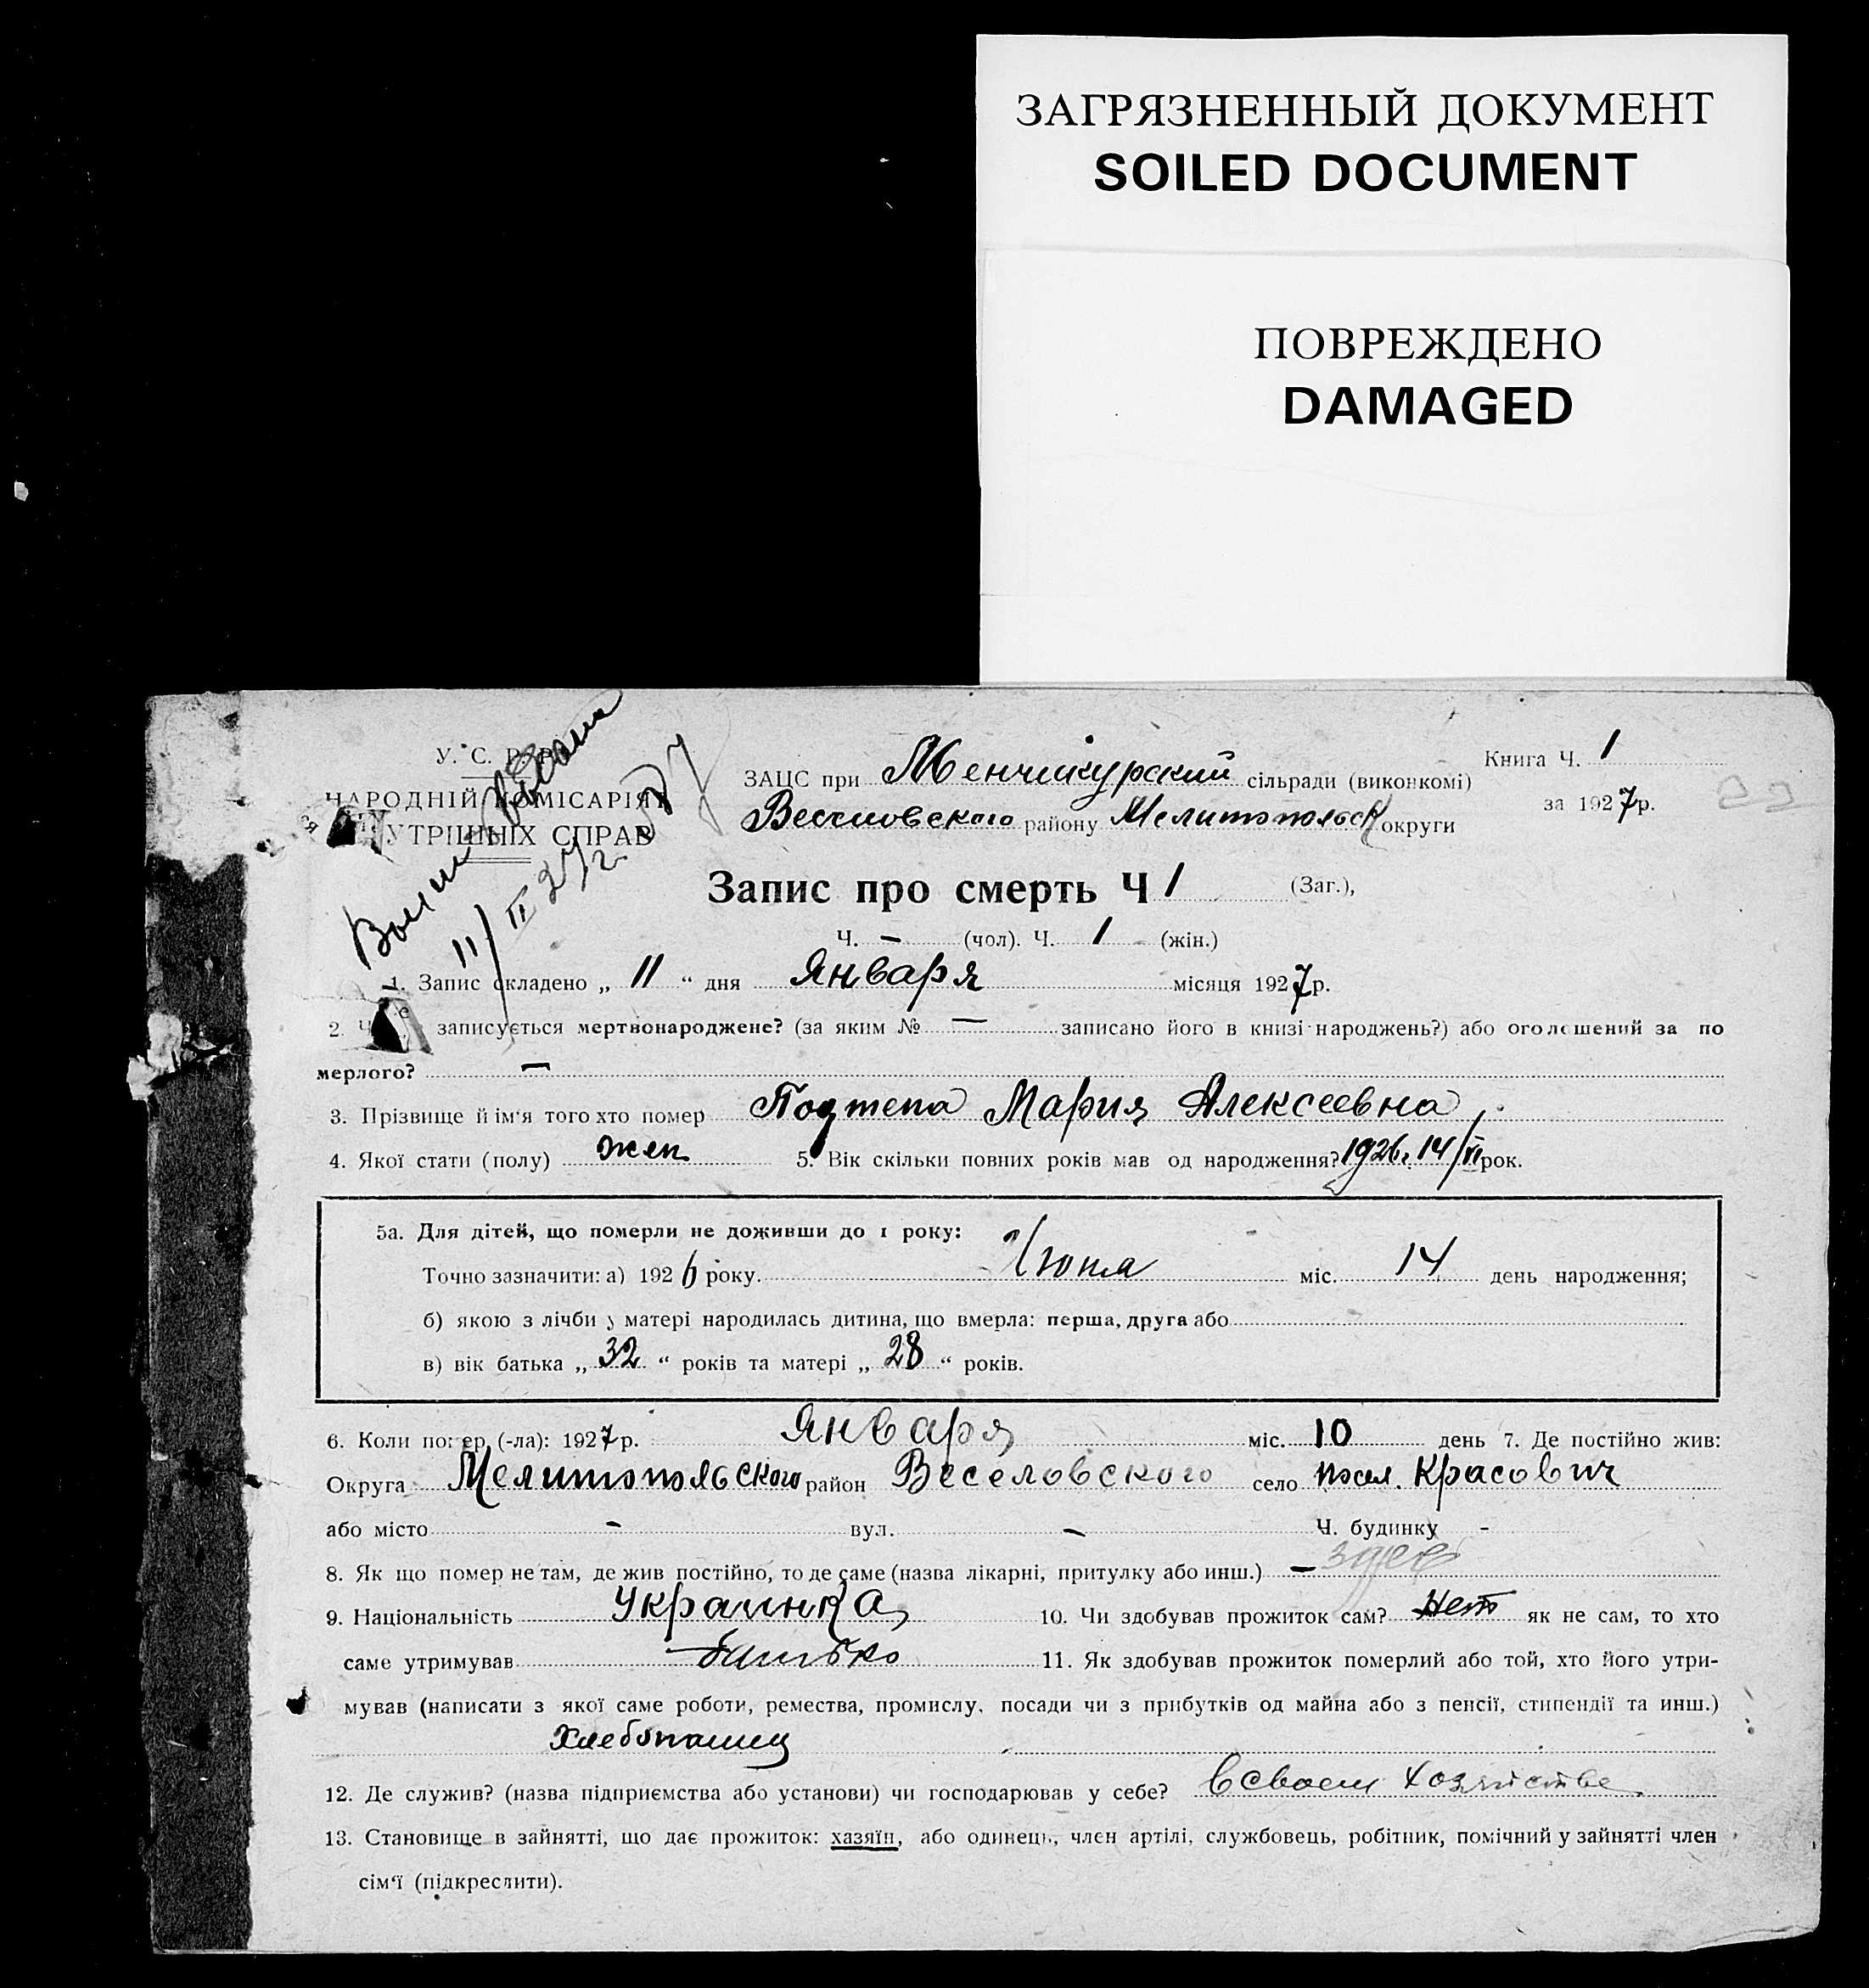 ЗАГРЯЗНЕННЫЙ ДОКУМЕНТ
SOILED DOCUMENT
ПОВРЕЖДЕНО
DAMAGED
У. С. Р. Р.
НАРОДНІЙ КОМІСАРІЯТ
УТРІШНІХ СПРАВ
11/II 27 г.
ЗАЦС при Менчикурский сільради (виконкомі)
Веселовского району Мелитопольск округи
Книга Ч. 1
за 1927р.
Запис про смерть Ч 1 (Заг.),
Ч. – (чол). Ч. 1 (жін.)
1. Запис складено „ 11 “ дня Января місяця 1927р.
2. Ч записується мертвонароджене? (за яким № — записано його в книзі народжень?) або оголошений за по
мерлого? –
3. Прізвище й ім'я того хто помер Подтепа Мария Алексеевна
4. Якої стати (полу) жен 5. Вік скільки повних років мав од народження? 1926г. 14/VI рок.
5а. Для дітей, що померли не доживши до 1 року:
Точно зазначити: а) 1926 року. Июня міс. 14 день народження;
б) якою з лічби у матері народилась дитина, що вмерла: перша, друга або
в) вік батька „ 32 “ років та матері „ 28 “ років.
6. Коли помер (-ла): 1927р. Января міс. 10 день 7. Де постійно жив:
Округа Мелитопольского район Веселовского село посел. Красович
або місто – вул. – Ч. будинку -
8. Як що помер не там, де жив постійно, то де саме (назва лікарні, притулку або инш.) – здесь
9. Національність Украинка 10. Чи здобував прожиток сам? Нет як не сам, то хто
саме утримував батько 11. Як здобував прожиток померлий або той, хто його утри-
мував (написати з якої саме роботи, ремества, промислу, посади чи з прибутків од майна або з пенсії, стипендії та инш.)
Хлебопашец
12. Де служив? (назва підприємства або установи) чи господарював у себе? в своем хозяйстве
13. Становище в зайнятті, що дає прожиток: хазяїн, або одинець, член артілі, службовець, робітник, помічний у зайнятті член
сім'ї (підкреслити).